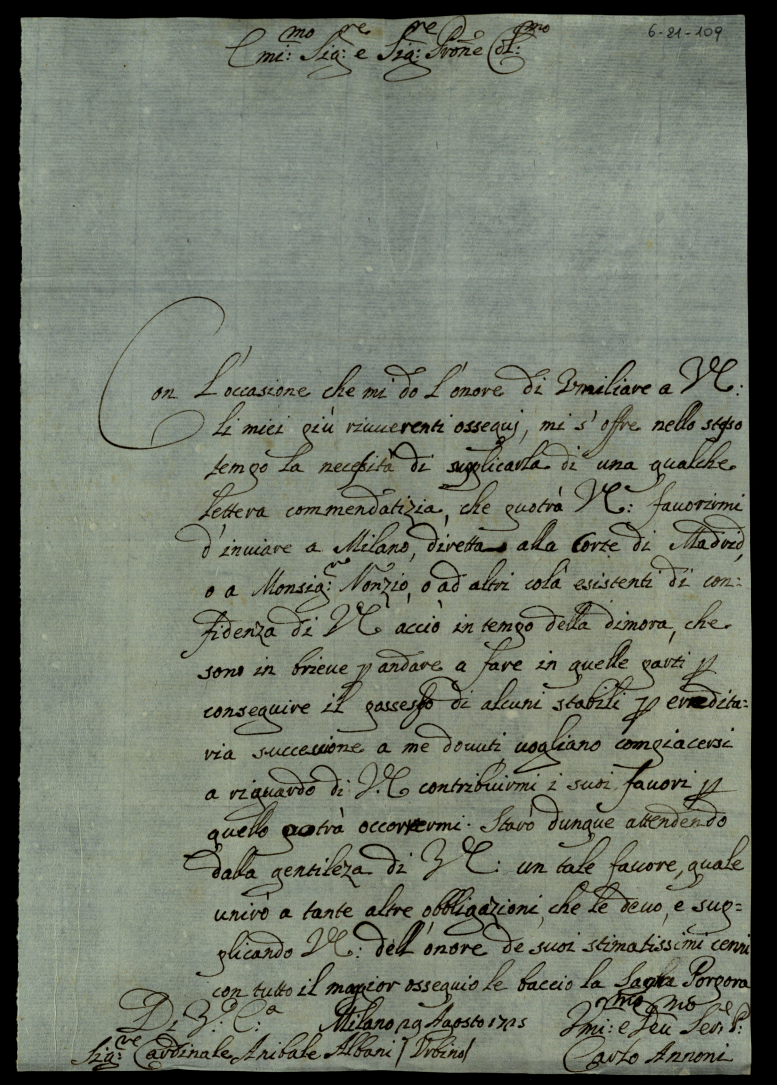 6-21-109
Emi:mo Sig:re e Sig:re Prone Col:mo
Con l'occasione che mi do l'onore di Umiliare a VE:
li miei più riuuerenti ossequj, mi s'offre nello stesso
tempo la necessità di supplicarla di una qualche
lettera commendatizia, che puotrà VE: fauorirmi
d'inuiare a Milano, diretta alla Corte di Madrid,
o a Monsig:re Nonzio, o ad altri colà esistenti di con=
fidenza di VE acciò in tempo della dimora, che
sono in brieue p andare a fare in quelle parti p
conseguire il possesso di alcuni stabili p eredita=
ria successione a me douuti uogliano compiacersi
a riguardo di VE contribuirmi i suoi fauori p
quello potrà occorrermi. Starò dunque attendendo
dalla gentileza di VE: un tale fauore, quale
unirò a tante altre obbligazioni, che le deuo, e sup=
plicando VE: dell'onore de suoi stimatissimi cenni
con tutto il magior ossequio le baccio la Sagra Porpora
Di V.E:a Milano 29 Agosto 1725 Umi:mo e Deu:mo Ser:re
Sig:re Cardinale Anibale Albani / Urbino / Carlo Annoni